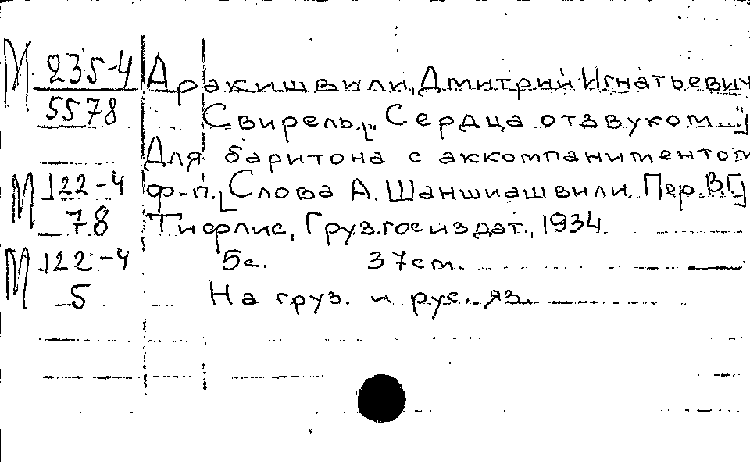 М 235-4 Аракишвили, Дмитрий Игнатьевич
5578 Свирель. [„Сердца отзвуком..."]
Для баритона с аккомпаниментом
М 122-4 ф-п. [Слова А. Шаншиашвили. Пер. В Г]
78 Тифлис, Груз. госиздат., 1934.
М 122-4 5с. 37см.
5 На груз. и рус. яз.